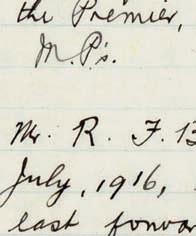 the Premier,
M.P's.
Mr. R. F. B
July, 1916,
last forwa